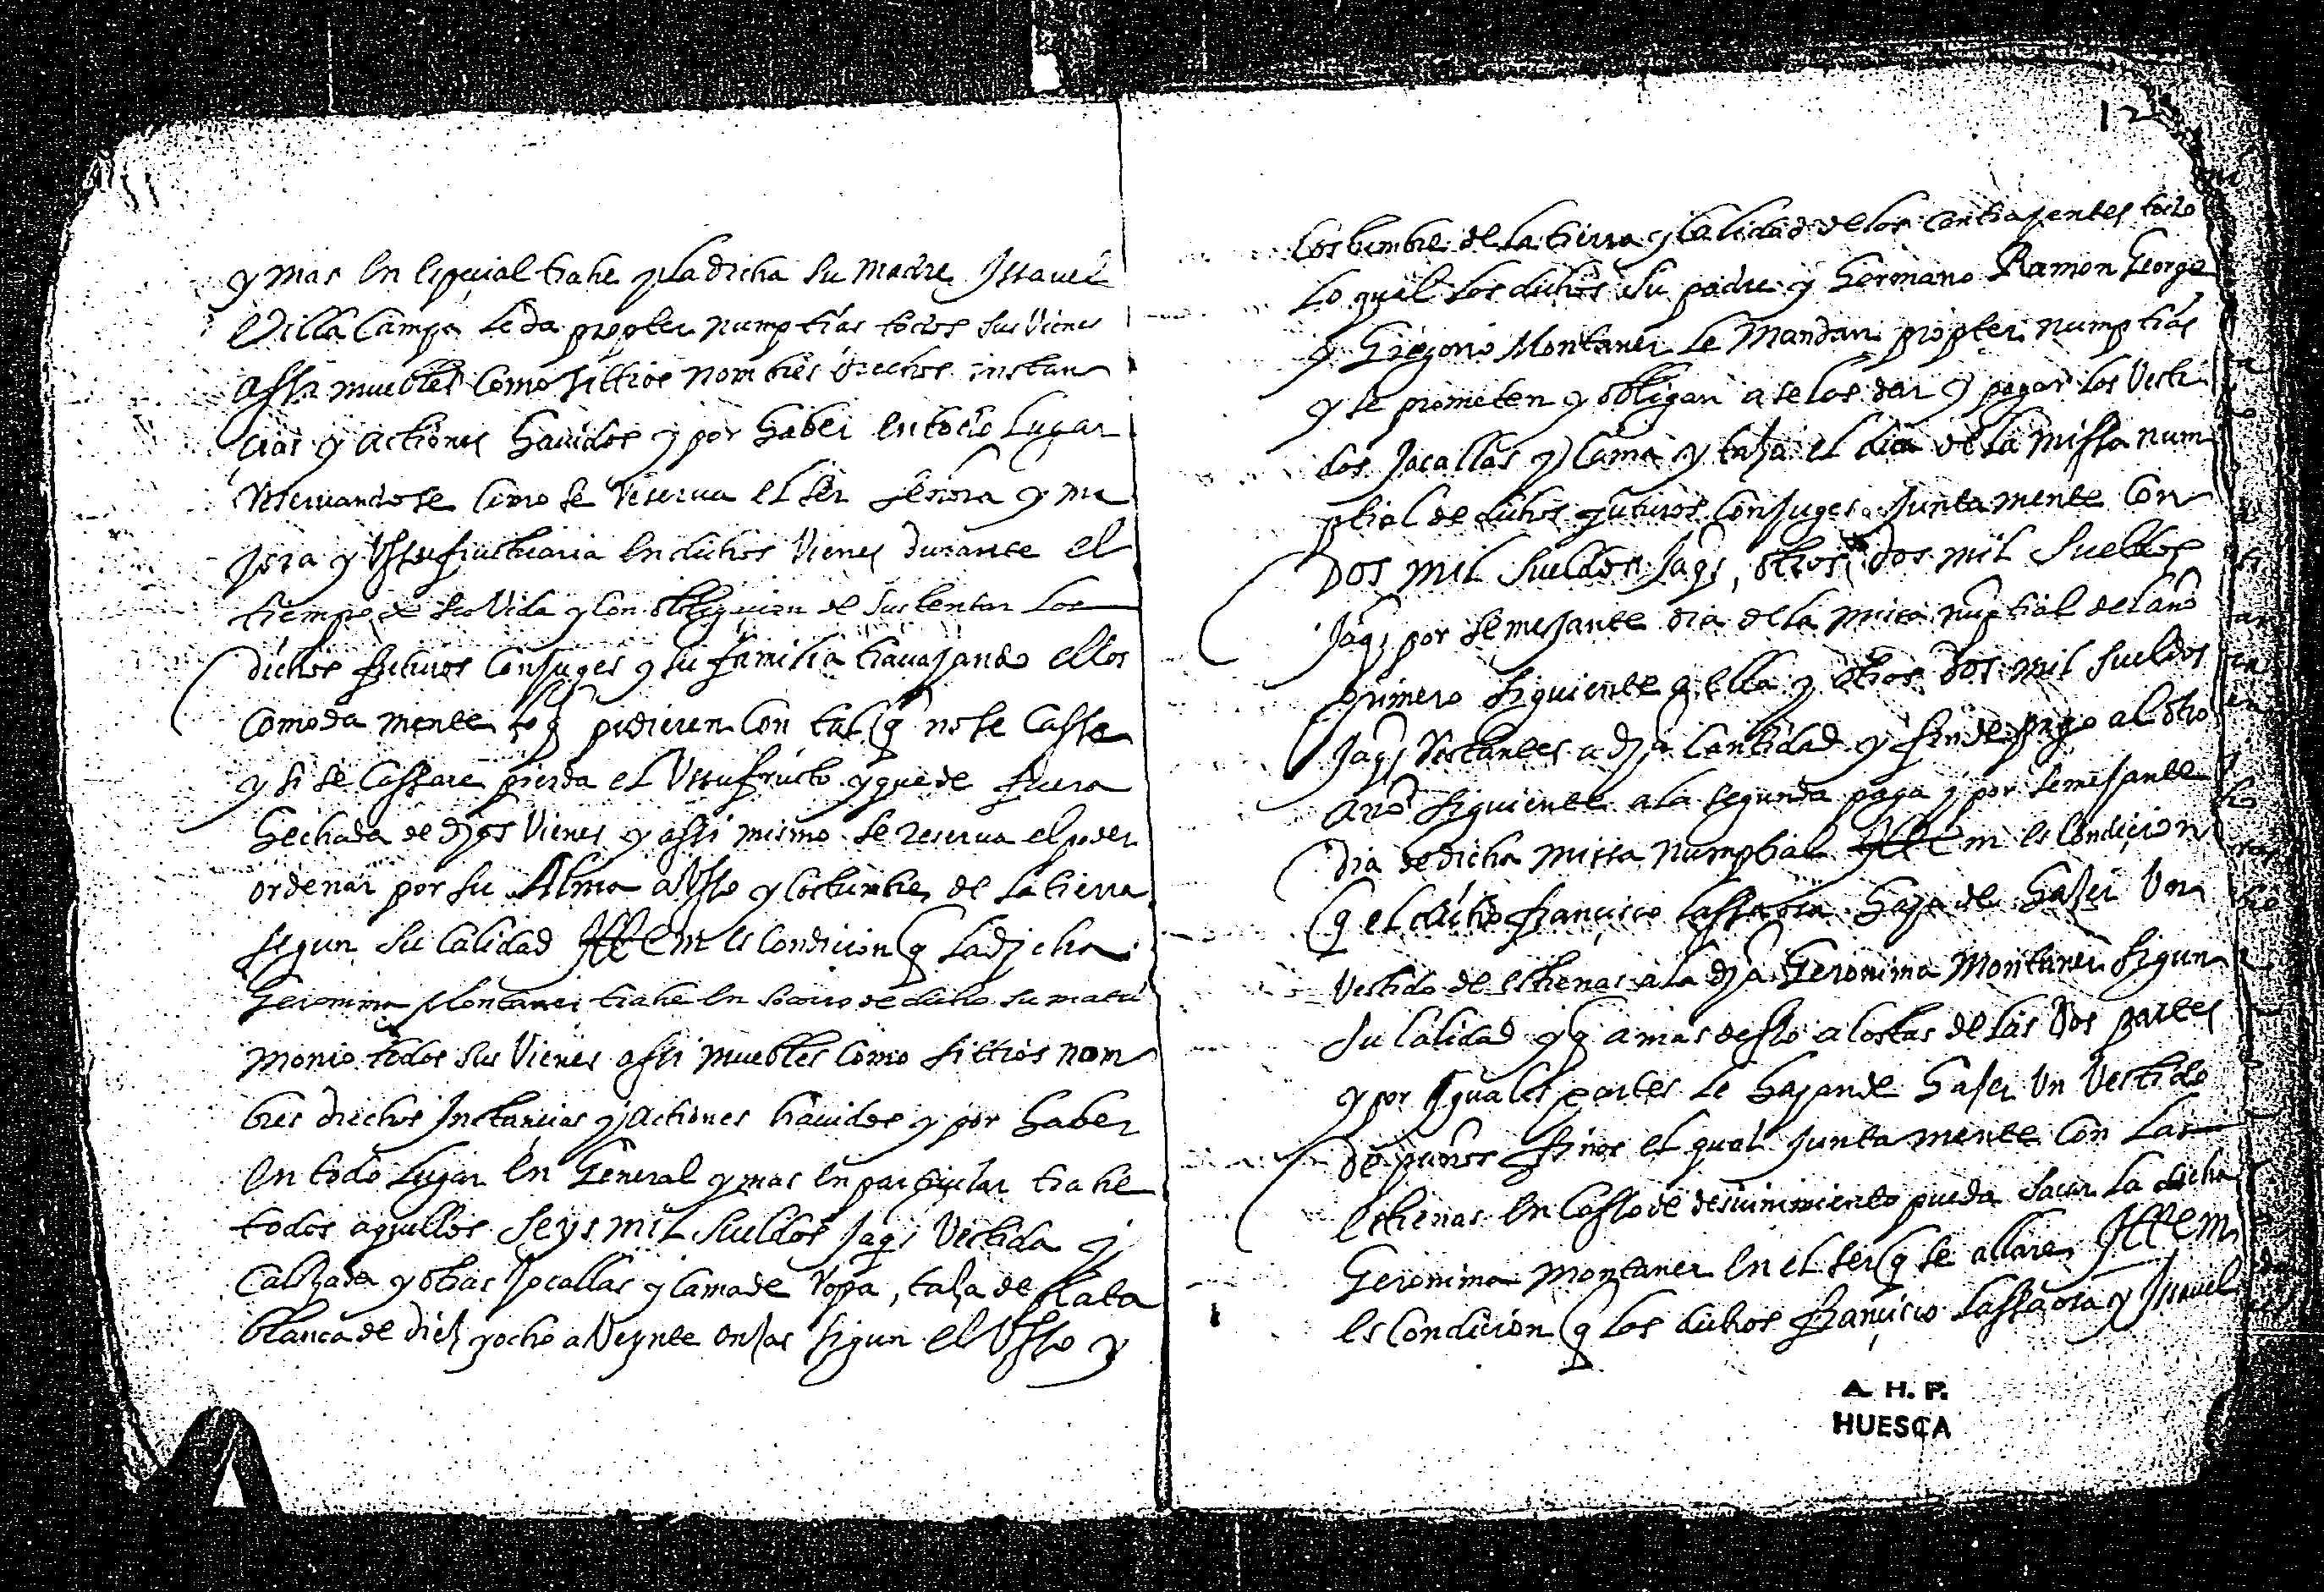 y mas en espeçial trahe y la dicha su madre Issavel
Villa Campa le da propter numptias todos sus vienes
assi muebles como sittios nombres drechos instan
cias y actiones havidos y por haber en todo lugar
reservandose como se reserva el ser señora y ma
jora y ussufructuaria en dichos vienes durante el
tiempo de su vida y con obligacion de sustentar los
dichos futuros conjuges y su familia travajando ellos
comodamente lo q pudieren con tal q no se casse
y si se cassare pierda el ussufructo y quede fuera
hechada de djos vienes y assi mismo se reserva el poder
ordenar por su Alma a usso y costumbre de la tierra
segun su calidad Ittem es condicion q la djcha
Geronima Montaner trahe en socorro de dicho su matri
monio todos sus vienes assi muebles como sittios nom
bres drechos Instancias y actiones havidos y por haber
en todo lugar en General y mas en particular trahe
todos aquellos seys mil sueldos jaqs vestida y
calzada y otras jocallas y cama de ropa, taça de plata
blanca de diez y ocho a veynte onzas sigun el usso y
12
costumbre de la tierra y calidad de los contrayentes todo
lo qual los dichos su padre y hermano Ramon George
y Gregorio Montaner le mandan propter numptias
y se prometen y obligan a se los dar y pagar los vesti
dos jacallas y cama y taza el dia de la missa num
ptial de dichos futuros conjuges juntamente con
dos mil sueldos jaqs, otros dos mil sueldos
jaqs por semejante dia de la missa nuptial del año
primero siguiente a ella y otros dos mil sueldos
jaqs restantes a dja cantidad y fin de pago al otro
año siguiente a la segunda paga y por semejante
dia de dicha missa numptial Ittem es condicion
q el dicho françisco lassaosa haya de hazer un
vestido de estrenas a la dja Geronima Montaner sigun
su calidad y q a mas desto a costas de las dos partes
y por iguales partes le hayan de hazer un vestido
de paños finos el qual juntamente con las
estrenas en casso de desvinimiento pueda sacar la dicha
Geronima Montaner en el ser q se allare Ittem
es condicion q los dichos françisco lassaosa y Issavel
A. H. P.
HUESCA